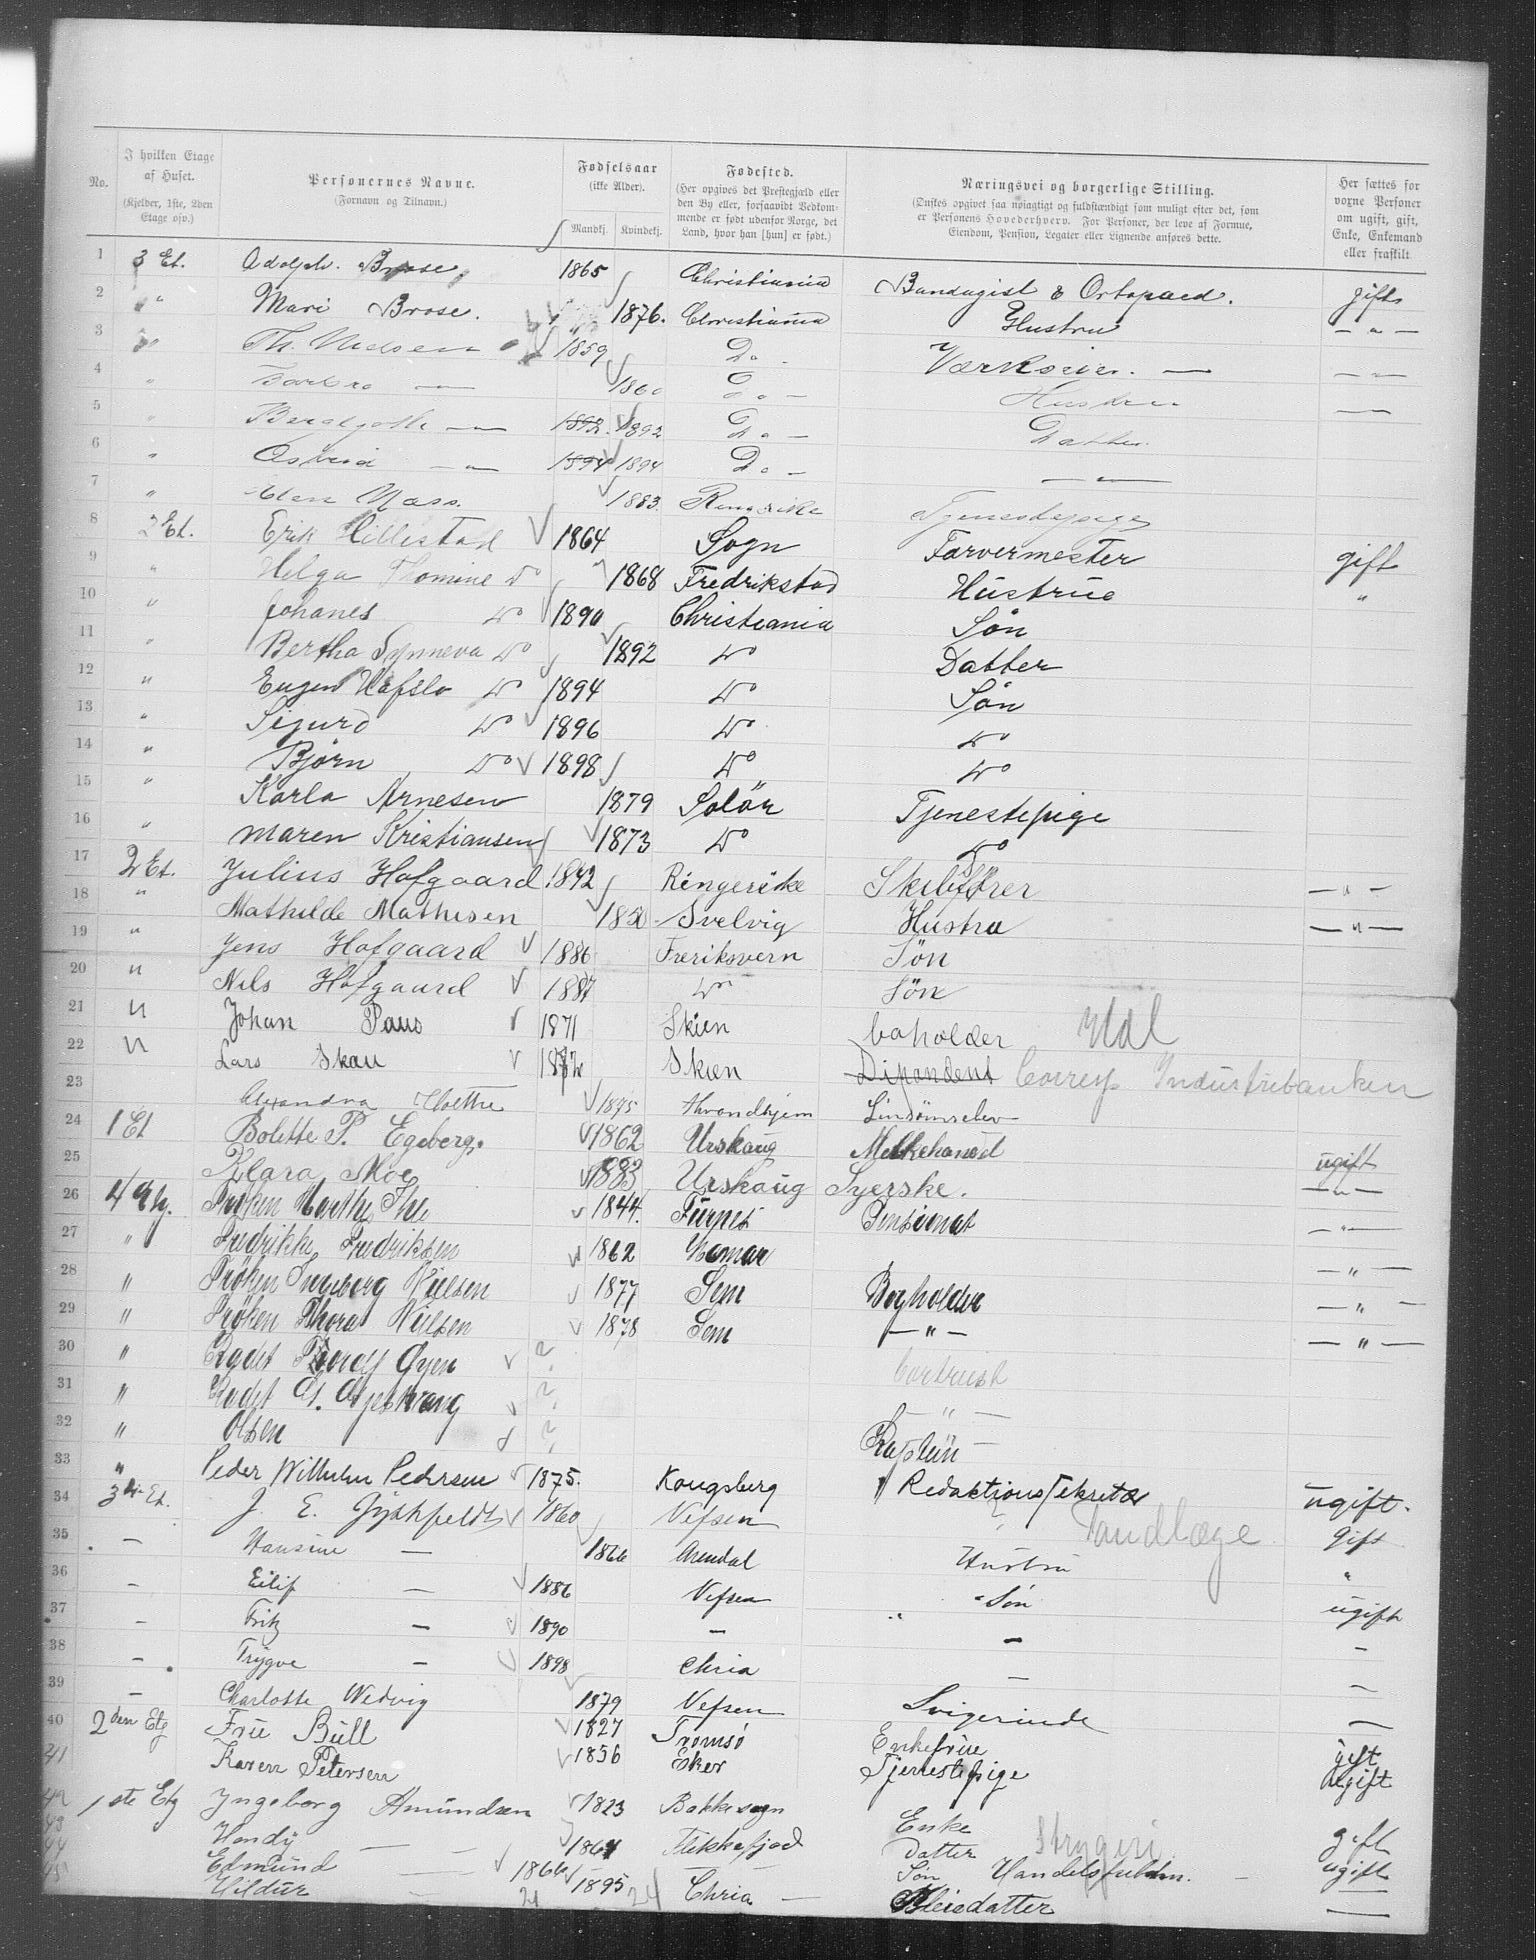 No. I hvilken Etage af Huset. (Kjelder, 1ste, 2den Etage osv.) Personernes Navne. (Fornavn og Tilnavn.) Fødselsaar (ikke Alder). Mandkj. Kvindekj. Fødested. (Her opgives det Præstegjæld eller den By eller, forsaavidt Vedkommende er født udenfor Norge, det Land, hvor han [hun] er født.) Næringsvei og borgerlige Stilling. (Ønskes opgivet saa nøiagtigt og fuldstændigt som muligt efter det, som er Personens Hovederhverv. For Personer, der leve af Formue, Eiendom, Pension, Legater eller Lignende anføres dette. Her sættes for voxne Personer om ugift, gift, Enke, Enkemand eller fraskilt.
1 3 Et. Adolph. Brose 1865 Christiania Bandagist & Ortopæd. gift
2 " Mari Brose. 1876. Christiania Hustru — " —
3 " Th. Nielsen 1859 Do. Værkseier. — — " —
4 " — 1860 Do — Hustru — —
5 " — " — 1892. 1892 Do — Datter
6 " — " — 1894 1894 Do — — " —
7 " Næss. 1883. Ringerike Tjenestepige
8 2 Et. Erik Hillestad 1864 Sogn Farvermester gift
9 " Helga Thomine Do 1868 Fredrikstad Hustrue "
10 " Johanes Do 1890 Christiania Søn
11 " Bertha Synneva Do 1892 Do Datter
12 " Eugen Hafslo Do 1894 Do Søn
13 " Sigurd Do 1896 Do Do
14 " Bjørn Do 1898 Do Do
15 " Karla Arnesen 1879 Solør Tjenestepige
16 " Maren Kristiansen 1873 Do Do
17 2 Et. Julius Hofgaard 1842 Ringerike Skibsfører — " —
18 " Mathilde Mathisen 1850 Svelvig Hustru — " —
19 " Jens Hofgaard 1886 Freriksvern Søn
20 " Nils Hofgaard 1887 Do Søn
21 " Johan Paus 1871 Skien boholder
22 " Lars Skau Skien Disponent Corresp Industriebanken
23 Alexandra 1875 throndhjem
24 1 Et Bolette P. Egeberg. 1862 Urskaug Melkehandel ugift
25 Klara Moe 1883 Urskaug Syerske. — " —
26 4 Etg. Frøken Marthe Ihle 1844. Furnes Pensionat — " —
27 " Fredrikke Fredriksen 1862 Hamar — " —
28 " Frøken Ingeborg Nielsen 1877 Sem Bogholder — " —
29 " Frøken Thora Nielsen 1878 Sem — " — — " —
30 " Kadet Øyen ?
31 " Kadet ? — " —
32 " Olsen ? Kaptein —
33 " Peder Wilhelm Pedersen 1875. Kongsberg Redaktionssekretær ugift.
34 3die Et. J. E. 1860 Vefsen Tandlæge gift
35 — Hansine — 1866 Arendal Hustru "
36 — Eilif — 1886 Vefsen " Søn ugift
37 — Fritz — 1890 — " — —
38 — Trygve — 1898 Chria — —
39 — Charlotte Wedvig 1879 Vefsen Svigerinde —
40 2den Etg Frue Bull 1827 Tromsø Enkefrue gift
41 Karen Petersen 1856 Eker Tjenestepige ugift
42 1ste Etg Ingeborg Amundsen 1823 Bakkesogn Enke gift
43 Handy — 1864 Flekkefjord Datter Strygeri ugift
44 Edmund — 1866 — Søn —
45 Hildur — 1895 Chria — Pleiedatter —
21 24